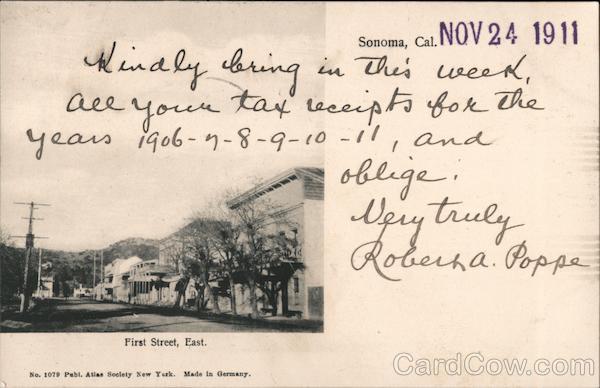 Sonoma, Cal. NOV 24 1911
Kindly bring in this week,
all your tax receipts for the
years 1906-7-8-9-10-11, and
oblige.
Very truly
Robert A. Poppe
First Street, East.
No. 1079 Publ. Atlas Society New York. Made in Germany.
CardCow.com